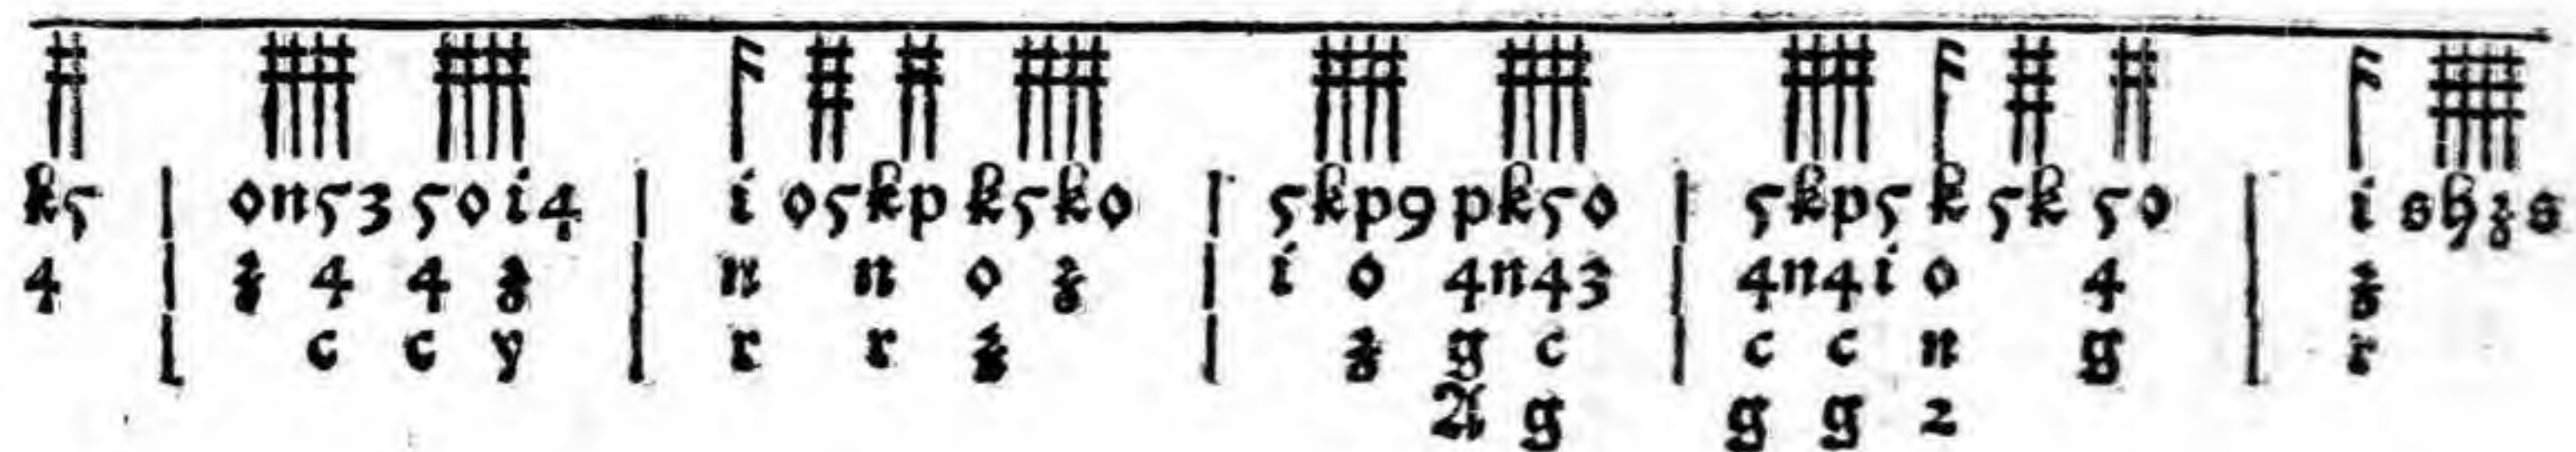 k5 | on53 50i4 | i 05kp k5ko | 5kp9 pk50 | 5kp5 k 5k 50 | i shzs
4 | z 4 4 z | n n o z | i o 4n43 | 4n4i o 4 | z
| c c y | r r z | z g c | c c n g | r
A g g g 2